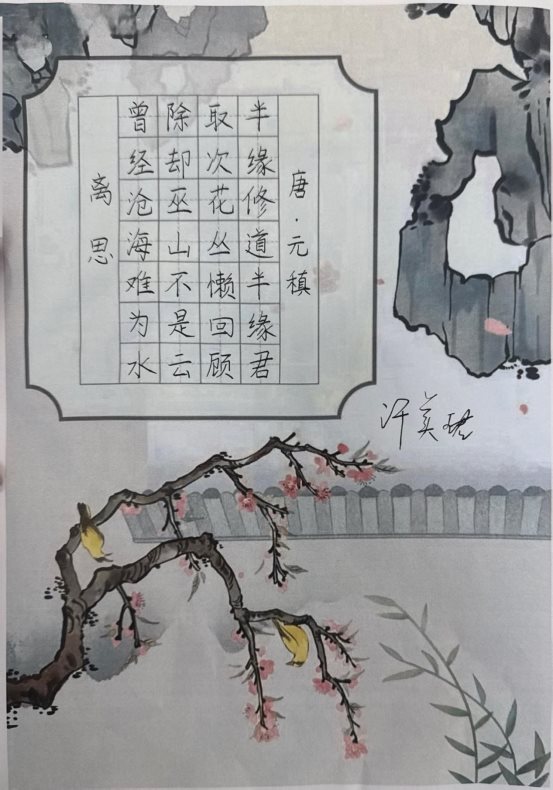 离思
曾经沧海难为水
除却巫山不是云
取次花丛懒回顾
半缘修道半缘君
唐·元稹
许美